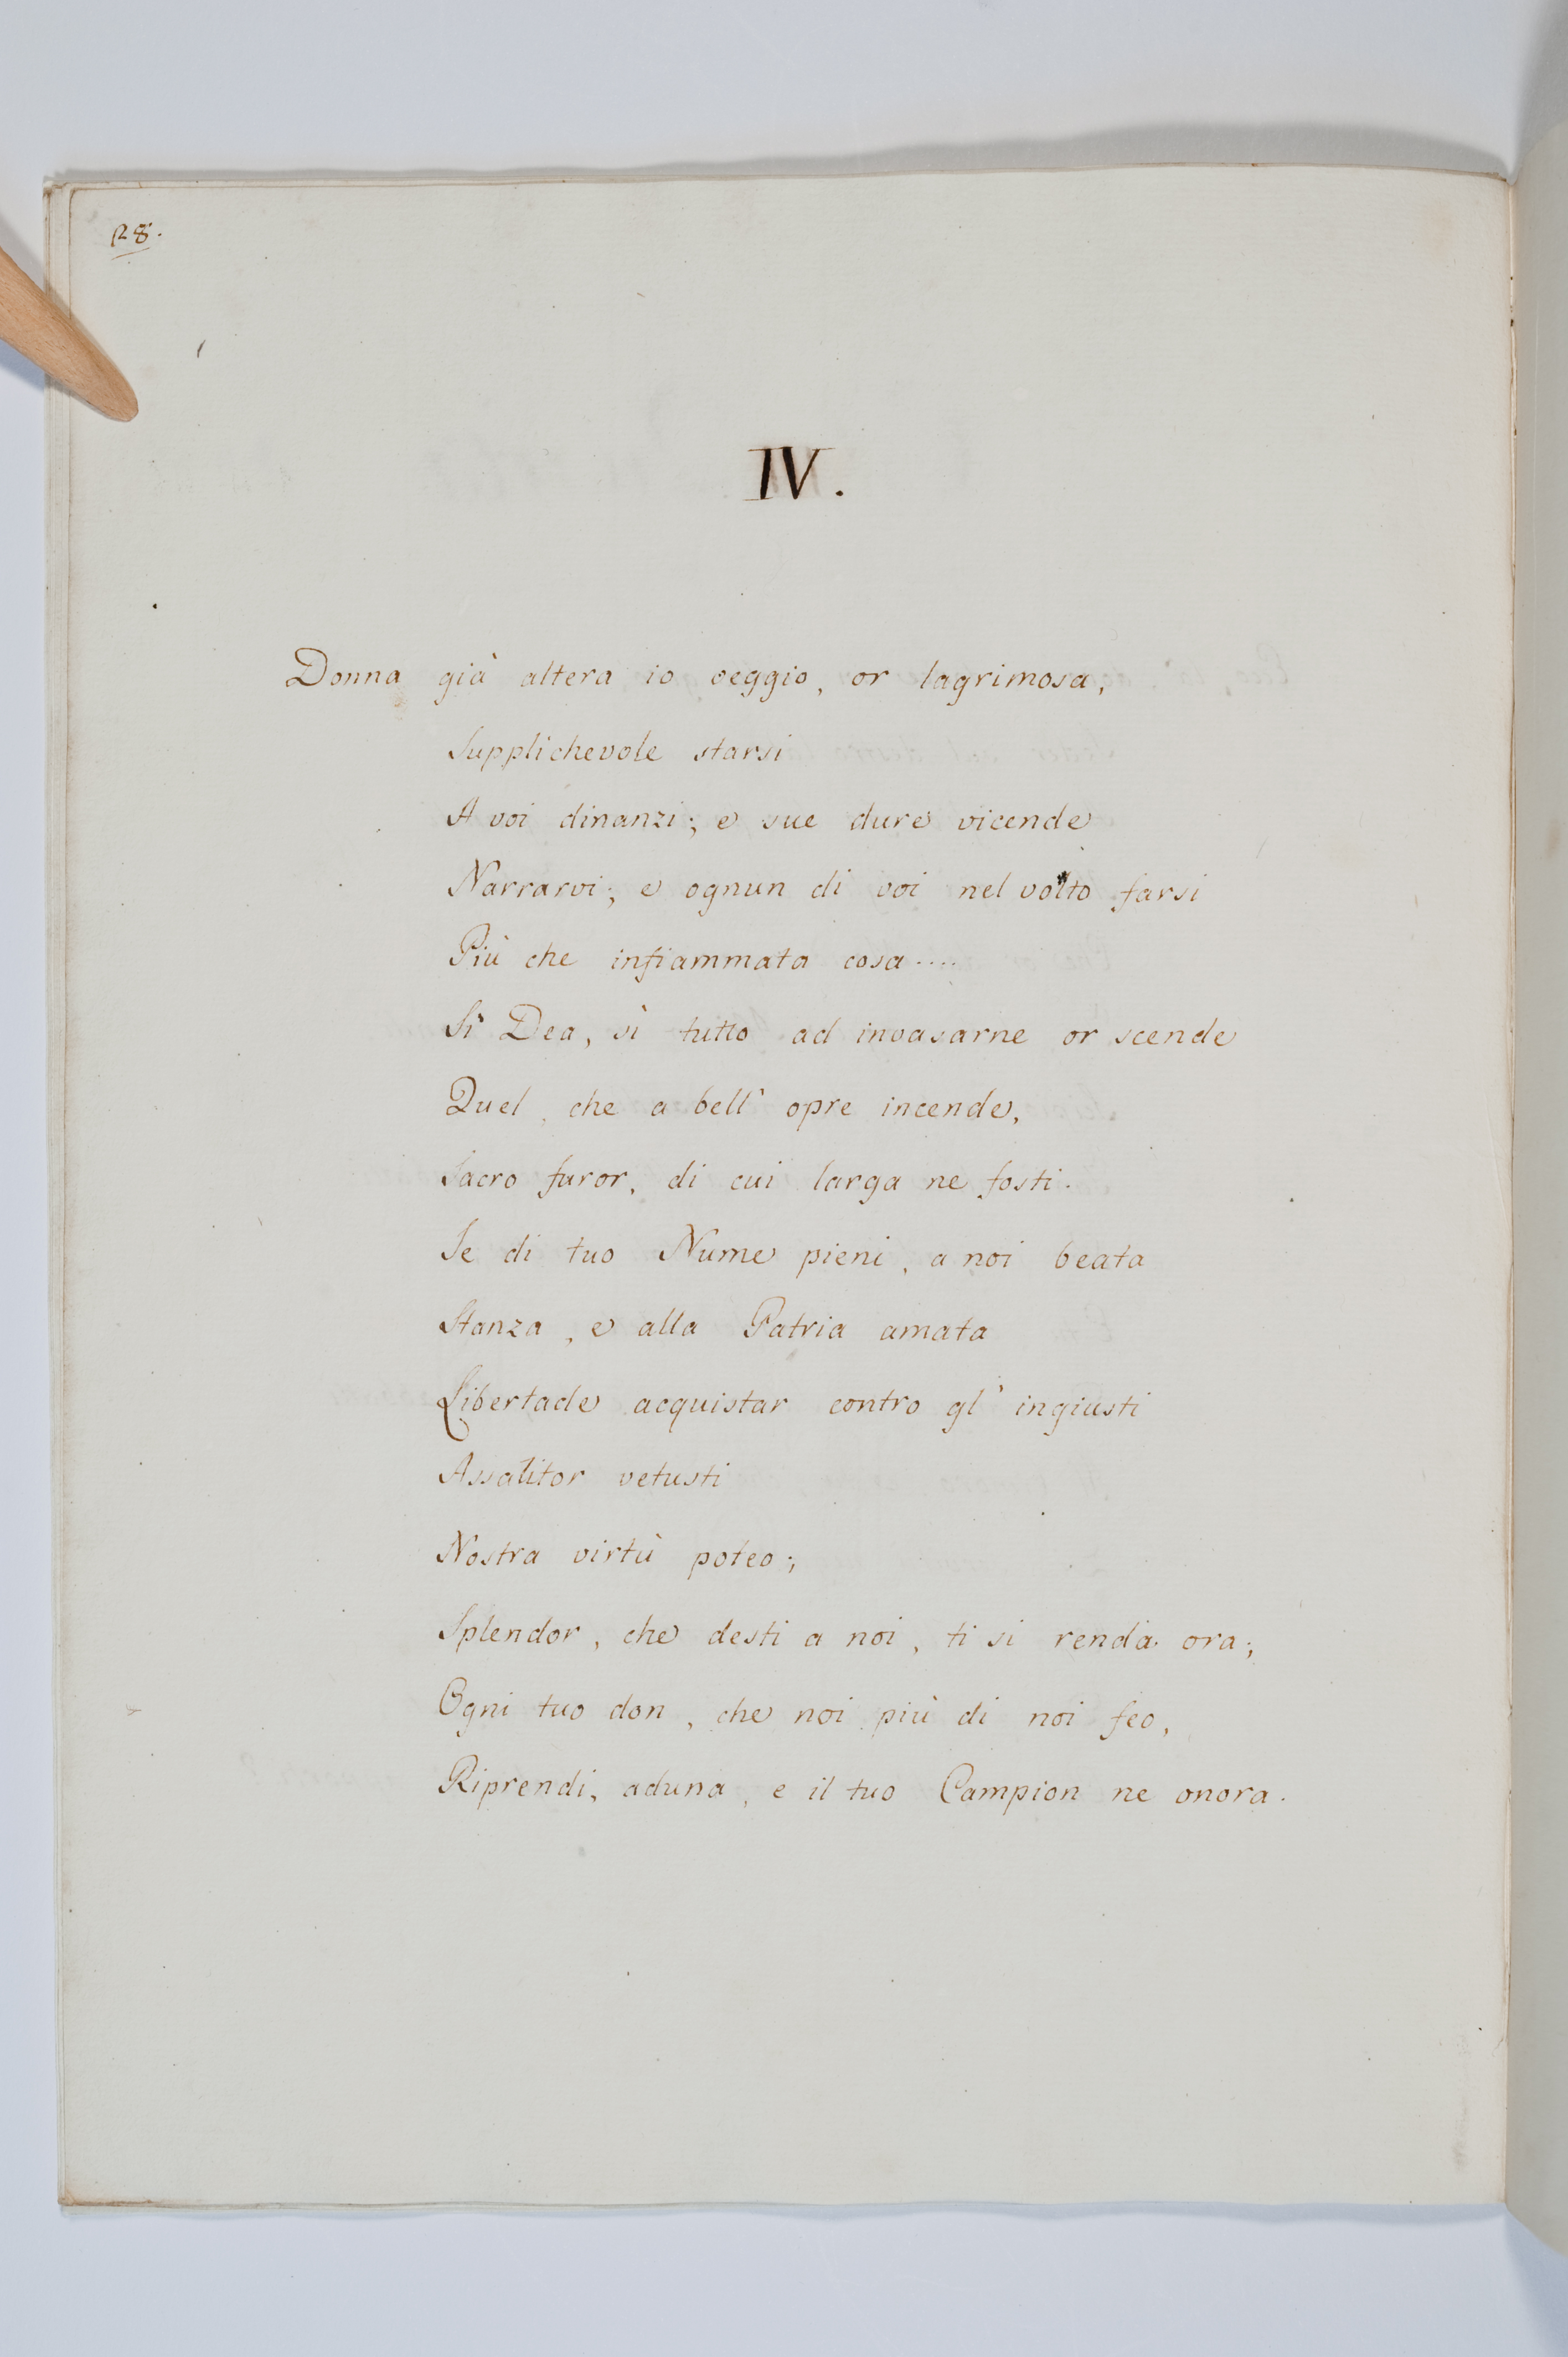 28.
IV.
Donna già altera io veggio, or lagrimosa,
Supplichevole starsi
A voi dinanzi; e sue dure vicende
Narrarvi; e ognun di voi nel volto farsi
Più che infiammata cosa....
Sì Dea, sì tutto ad invasarne or scende
Quel, che a bell' opre incende,
Sacro furor, di cui larga ne fosti.
Se di tuo Nume pieni, a noi beata
Stanza, e alla Patria amata
Libertade acquistar contro gl' ingiusti
Assalitor vetusti
Nostra virtù poteo;
Splendor, che desti a noi, ti si renda ora;
Ogni tuo don, che noi più di noi feo,
Riprendi, aduna, e il tuo Campion ne onora.